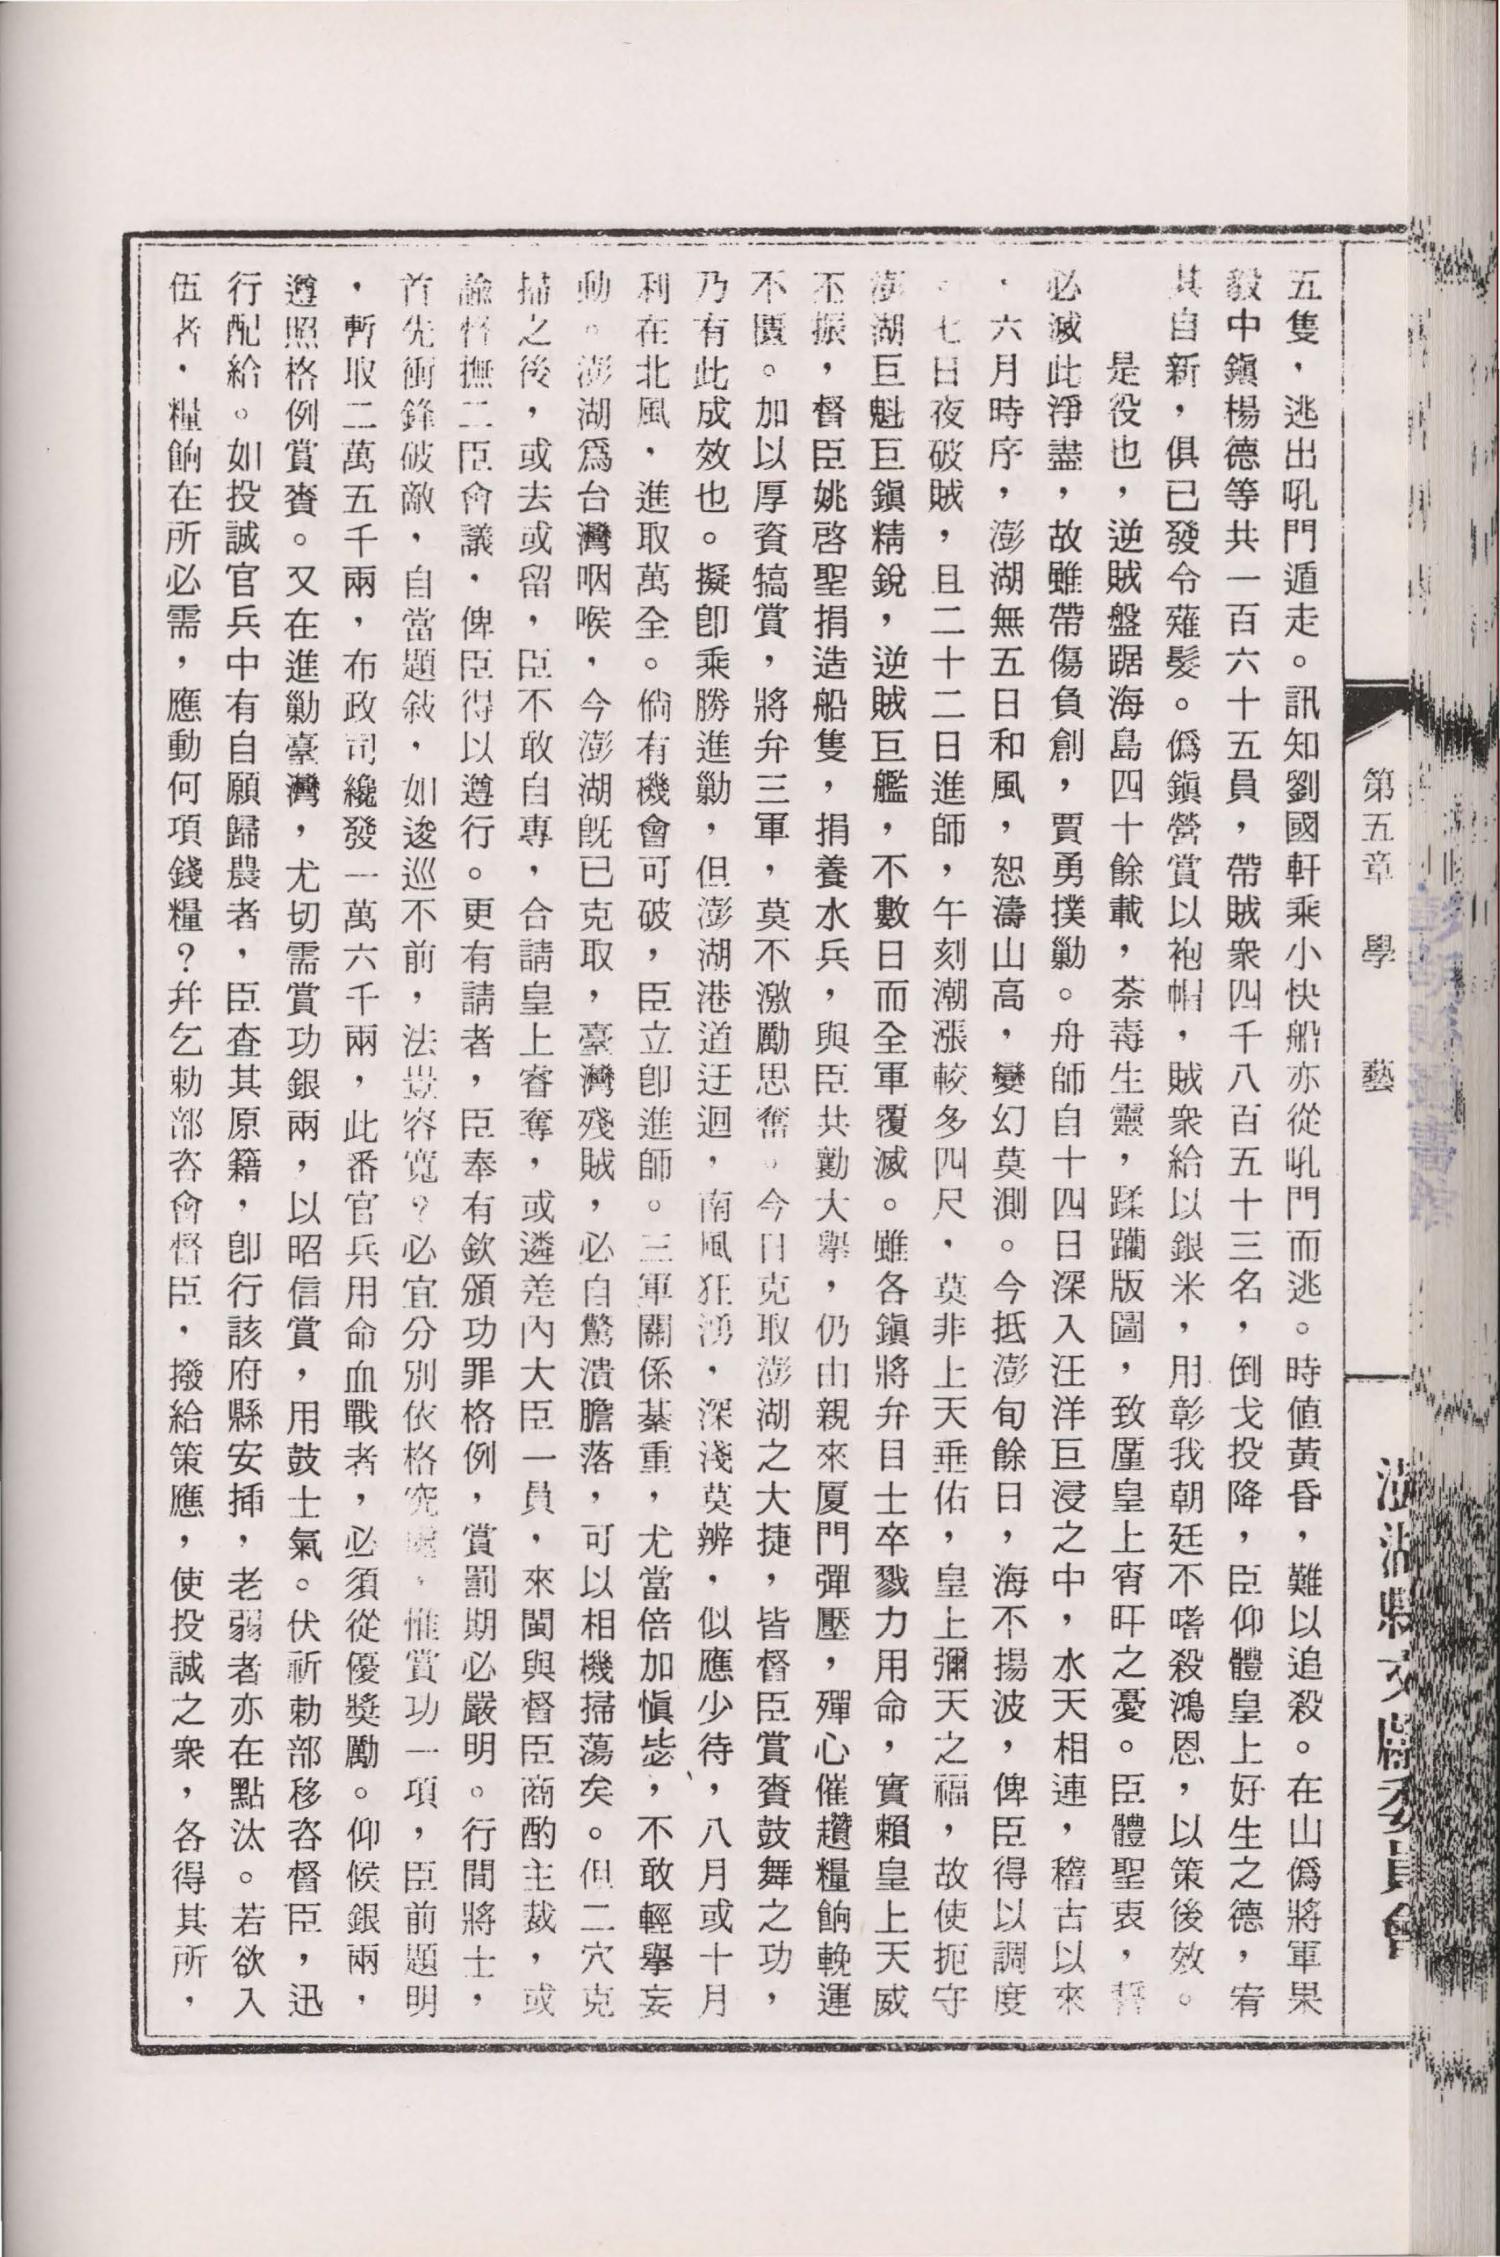 第五章　學　藝
澎湖縣文獻委員會
五隻，逃出吼門遁走。訊知劉國軒乘小快船亦從吼門而逃。時値黃昏，難以追殺。在山僞將軍果
毅中鎭楊德等共一百六十五員，帶賊衆四千八百五十三名，倒戈投降，臣仰體皇上好生之德，宥
其自新，俱已發令薙髮。僞鎭營賞以袍帽，賊衆給以銀米，用彰我朝廷不嗜殺鴻恩，以策後效。
是役也，逆賊盤踞海島四十餘載，荼毒生靈，蹂躪版圖，致厪皇上宵旰之憂。臣體聖衷，誓
必滅此淨盡，故雖帶傷負創，賈勇撲勦。舟師自十四日深入汪洋巨浸之中，水天相連，稽古以來
，六月時序，澎湖無五日和風，恕濤山高，變幻莫測。今抵澎旬餘日，海不揚波，俾臣得以調度
。七日夜破賊，且二十二日進師，午刻潮漲較多四尺，莫非上天垂佑，皇上彌天之福，故使扼守
澎湖巨魁巨鎭精銳，逆賊巨艦，不數日而全軍覆滅。雖各鎭將弁目士卒戮力用命，實賴皇上天威
丕振，督臣姚啓聖捐造船隻，捐養水兵，與臣共勷大擧，仍由親來厦門彈壓，殫心催趲糧餉輓運
不匱。加以厚資犒賞，將弁三軍，莫不激勵思奮。今日克取澎湖之大捷，皆督臣賞賚鼓舞之功，
乃有此成效也。擬卽乘勝進勦，但澎湖港道迂迴，南風狂湧，深淺莫辨，似應少待，八月或十月
利在北風，進取萬全。倘有機會可破，臣立卽進師。三軍關係綦重，尤當倍加愼毖，不敢輕擧妄
動。澎湖爲台灣咽喉，今澎湖旣已克取，臺灣殘賊，必自驚潰膽落，可以相機掃蕩矣。但二穴克
掃之後，或去或留，臣不敢自專，合請皇上睿奪，或遴差內大臣一員，來閩與督臣商酌主裁，或
諭督撫二臣會議，俾臣得以遵行。更有請者，臣奉有欽頒功罪格例，賞罰期必嚴明。行間將士，
首先衝鋒破敵，自當題敍，如逡巡不前，法豈容寬？必宜分別依格究處，惟賞功一項，臣前題明
，暫取二萬五千兩，布政司纔發一萬六千兩，此番官兵用命血戰者，必須從優獎勵。仰候銀兩，
遵照格例賞賚。又在進勦臺灣，尤切需賞功銀兩，以昭信賞，用鼓士氣。伏祈勅部移咨督臣，迅
行配給。如投誠官兵中有自願歸農者，臣查其原籍，卽行該府縣安揷，老弱者亦在點汰。若欲入
伍者，糧餉在所必需，應動何項錢糧？幷乞勅部咨會督臣，撥給策應，使投誠之衆，各得其所，